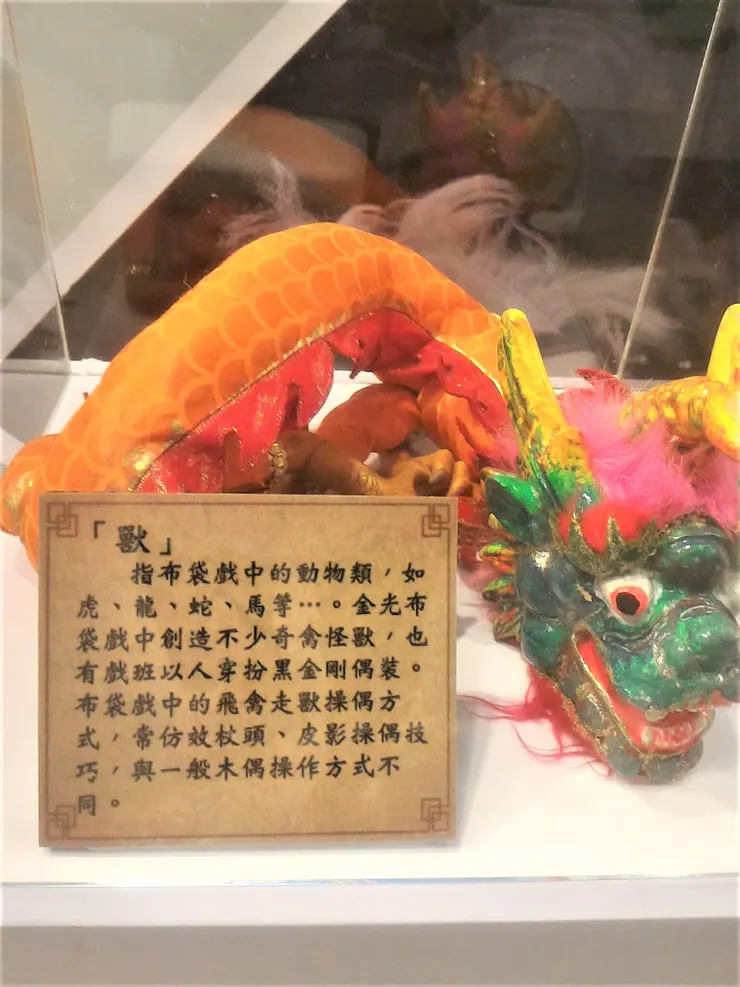 「獸」
指布袋戲中的動物類，如
虎、龍、蛇、馬等…。金光布
袋戲中創造不少奇禽怪獸，也
有戲班以人穿扮黑金剛偶裝。
布袋戲中的飛禽走獸操偶方
式，常仿效杖頭、皮影操偶技
巧，與一般木偶操作方式不
同。